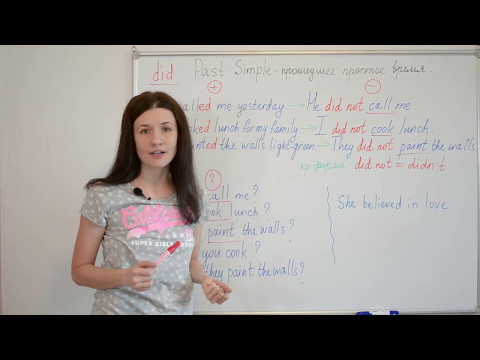 did Past Simple - прошедшее простое время.
+ -
called me yesterday → He did not call me
ked lunch for my family → I did not cook lunch
nted the walls light-green → They did not paint the walls
кр. форма did not = didn't
?
call me?
ook lunch?
paint the walls?
you cook?
they paint the walls?
She believed in love
SUPER GIRLS